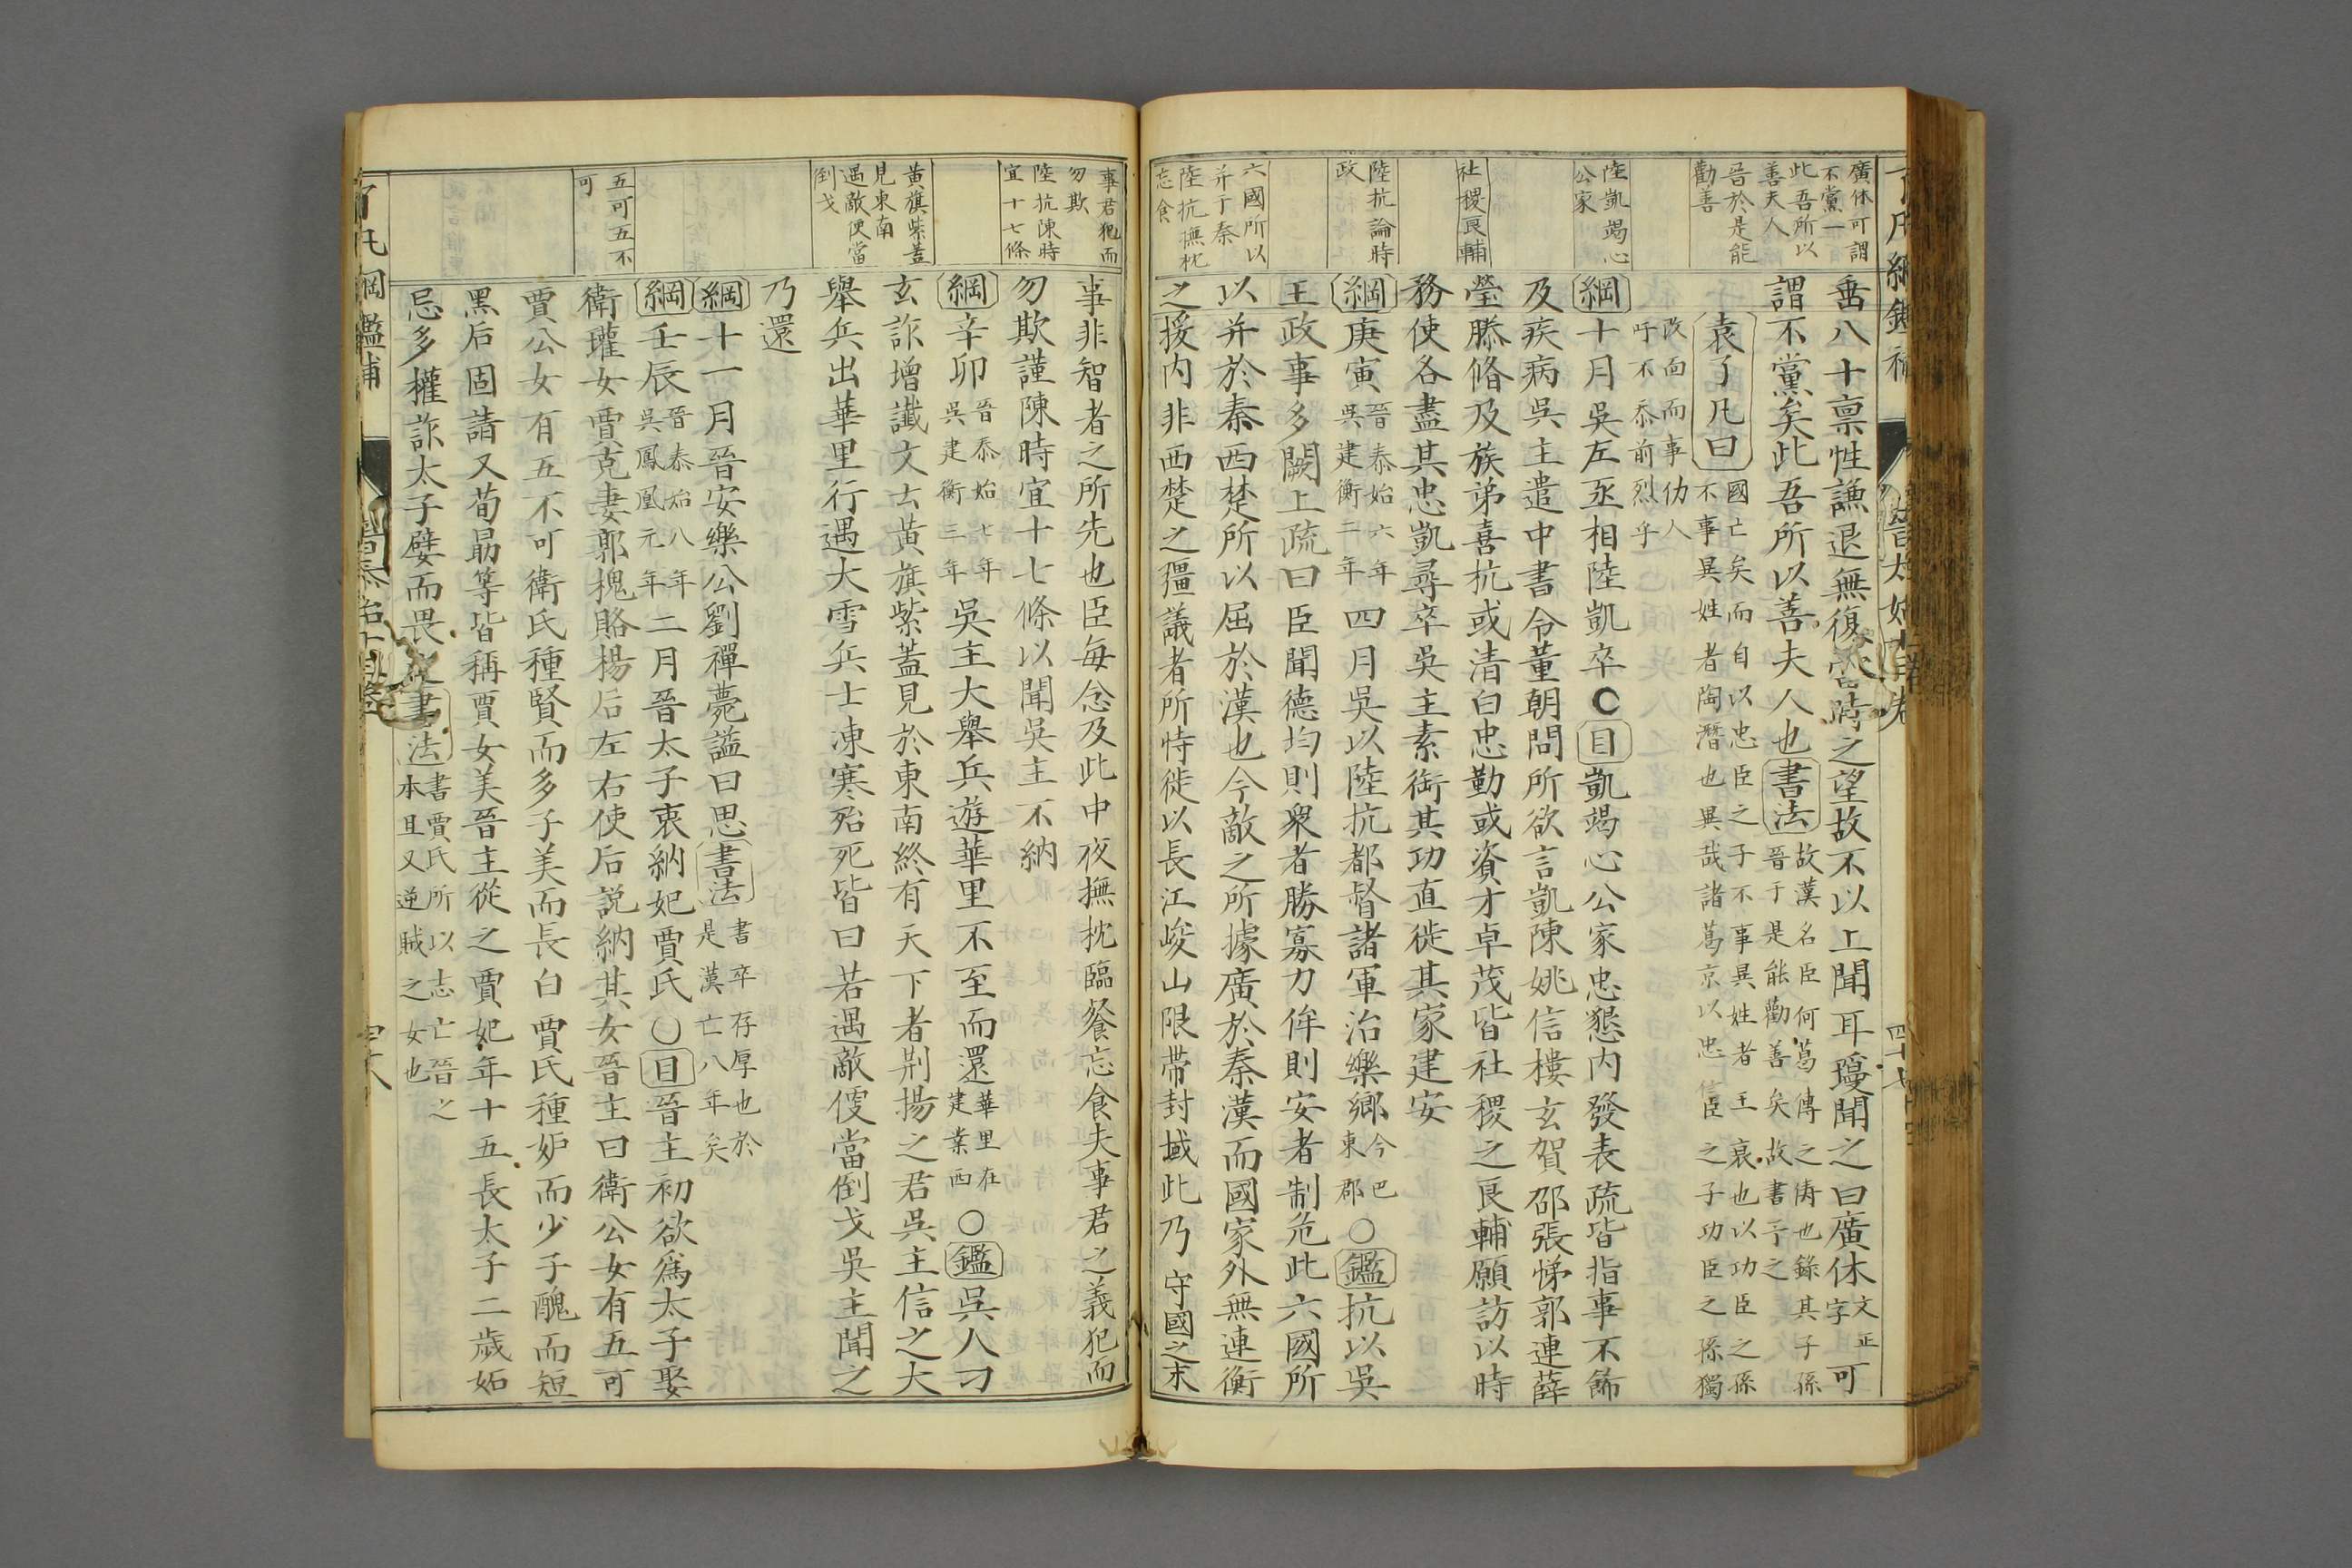 廣休可謂
不黨一
此吾所以
善夫人
晉於是能
勸善
陸凱竭心
公家
社稷良輔
陸抗論時
政
六國所以
并于秦
陸抗撫枕
忘食
垂八十禀性謙退無復當時之望故不以上聞耳瑾聞之曰廣休文正字可
謂不黨矣此吾所以善夫人也書法故漢名臣何葛傳之儔也錄其子孫晉于是能勸善矣故書予之
袁了凡曰國亡矣而自以忠臣之子不事異姓者王裒也以功臣之孫不事異姓者陶潛也異哉諸葛京以忠臣之子功臣之孫獨
改面而事仇人吁不忝前烈乎
綱十月吳左丞相陸凱卒○目凱竭心公家忠懇內發表疏皆指事不飾
及疾病吳主遣中書令董朝問所欲言凱陳姚信樓玄賀邵張悌郭連薛
瑩滕脩及族弟喜抗或清白忠勤或資才卓茂皆社稷之良輔願訪以時
務使各盡其忠凱尋卒吳主素銜其功直徙其家建安
綱庚寅晉泰始六年吳建衡二年四月吳以陸抗都督諸軍治樂鄉今巴東郡○鑑抗以吳
王政事多闕上疏曰臣聞德均則衆者勝寡力侔則安者制危此六國所
以并於秦西楚所以屈於漢也今敵之所據廣於秦漢而國家外無連衡
之援內非西楚之彊議者所恃徒以長江峻山限帶封域此乃守國之末
事君犯而
勿欺
陸抗陳時
宜十七條
黃旗紫蓋
見東南
遇敵便當
倒戈
五可五不
可
事非智者之所先也臣每念及此中夜撫枕臨餐忘食夫事君之義犯而
勿欺謹陳時宜十七條以聞吳主不納
綱辛卯晉泰始七年吳建衡三年吳主大舉兵遊華里不至而還華里在建業西○鑑吳人刁
玄詐增讖文云黃旗紫蓋見於東南終有天下者荆揚之君吳主信之大
舉兵出華里行遇大雪兵士凍寒殆死皆曰若遇敵便當倒戈吳主聞之
乃還
綱十一月晉安樂公劉禪薨謚曰思書法書卒存厚也於是漢亡八年矣
綱壬辰晉泰始八年吳鳳凰元年二月晉太子衷納妃賈氏○目晉主初欲爲太子娶
衛瓘女賈充妻郭槐賂楊后左右使后說納其女晉主曰衛公女有五可
賈公女有五不可衛氏種賢而多子美而長白賈氏種妒而少子醜而短
黑后固請又荀勗等皆稱賈女美晉主從之賈妃年十五長太子二歲妬
忌多權詐太子嬖而畏之書法書賈氏所以志亡晉之本且又逆賊之女也
了凡綱鑑補
四十八